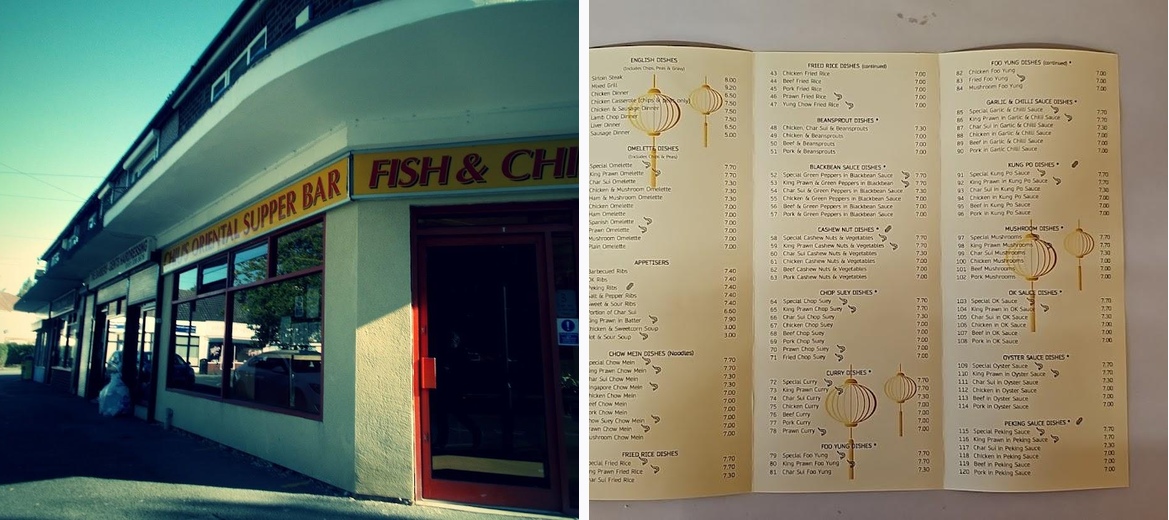 ORIENTAL SUPPER BAR
FISH & CHI
ENGLISH DISHES
(Includes Chips, Peas & Gravy)
Sirloin Steak 8.00
Mixed Grill 9.20
Chicken Dinner 6.50
Chicken Casserole (chips & peas only) 7.50
Chicken & Sausage Dinner 7.50
Lamb Chop Dinner 7.50
Liver Dinner 6.50
Sausage Dinner 5.00
OMELETTE DISHES
(Includes Chips & Peas)
Special Omelette 7.70
King Prawn Omelette 7.70
Char Sui Omelette 7.30
Chicken & Mushroom Omelette 7.30
Ham & Mushroom Omelette 7.30
Chicken Omelette 7.00
Ham Omelette 7.00
Spanish Omelette 7.00
Prawn Omelette 7.00
Mushroom Omelette 7.00
Plain Omelette 7.00
APPETISERS
Barbecued Ribs 7.40
OK Ribs 7.40
Peking Ribs 7.40
Salt & Pepper Ribs 7.40
Sweet & Sour Ribs 7.40
Portion of Char Sui 6.60
King Prawn in Batter 7.90
Chicken & Sweetcorn Soup 3.00
Hot & Sour Soup 3.00
CHOW MEIN DISHES (Noodles)
Special Chow Mein 7.70
King Prawn Chow Mein 7.70
Char Sui Chow Mein 7.30
Singapore Chow Mein 7.30
Chicken Chow Mein 7.00
Beef Chow Mein 7.00
Pork Chow Mein 7.00
Chow Suey Chow Mein 7.00
Prawn Chow Mein 7.00
Mushroom Chow Mein 7.00
FRIED RICE DISHES
Special Fried Rice 7.70
King Prawn Fried Rice 7.70
Char Sui Fried Rice 7.30
FRIED RICE DISHES (continued)
43 Chicken Fried Rice 7.00
44 Beef Fried Rice 7.00
45 Pork Fried Rice 7.00
46 Prawn Fried Rice 7.00
47 Yung Chow Fried Rice 7.00
BEANSPROUT DISHES
48 Chicken, Char Sui & Beansprouts 7.30
49 Chicken & Beansprouts 7.00
50 Beef & Beansprouts 7.00
51 Pork & Beansprouts 7.00
BLACKBEAN SAUCE DISHES *
52 Special Green Peppers in Blackbean Sauce 7.70
53 King Prawn & Green Peppers in Blackbean 7.70
54 Char Sui & Green Peppers in Blackbean Sauce 7.30
55 Chicken & Green Peppers in Blackbean Sauce 7.00
56 Beef & Green Peppers in Blackbean Sauce 7.00
57 Pork & Green Peppers in Blackbean Sauce 7.00
CASHEW NUT DISHES *
58 Special Cashew Nuts & Vegetables 7.70
59 King Prawn Cashew Nuts & Vegetables 7.70
60 Char Sui Cashew Nuts & Vegetables 7.30
61 Chicken Cashew Nuts & Vegetables 7.00
62 Beef Cashew Nuts & Vegetables 7.00
63 Pork Cashew Nuts & Vegetables 7.00
CHOP SUEY DISHES *
64 Special Chop Suey 7.70
65 King Prawn Chop Suey 7.70
66 Char Sui Chop Suey 7.30
67 Chicken Chop Suey 7.00
68 Beef Chop Suey 7.00
69 Pork Chop Suey 7.00
70 Prawn Chop Suey 7.00
71 Fried Chop Suey 7.00
CURRY DISHES *
72 Special Curry 7.70
73 King Prawn Curry 7.70
74 Char Sui Curry 7.30
75 Chicken Curry 7.00
76 Beef Curry 7.00
77 Pork Curry 7.00
78 Prawn Curry 7.00
FOO YUNG DISHES *
79 Special Foo Yung 7.70
80 King Prawn Foo Yung 7.70
81 Char Sui Foo Yung 7.30
FOO YUNG DISHES (continued) *
82 Chicken Foo Yung 7.00
83 Fried Foo Yung 7.00
84 Mushroom Foo Yung 7.00
GARLIC & CHILLI SAUCE DISHES *
85 Special Garlic & Chilli Sauce 7.70
86 King Prawn in Garlic & Chilli Sauce 7.70
87 Char Sui in Garlic & Chilli Sauce 7.30
88 Chicken in Garlic & Chilli Sauce 7.00
89 Beef in Garlic & Chilli Sauce 7.00
90 Pork in Garlic Chilli Sauce 7.00
KUNG PO DISHES *
91 Special Kung Po Sauce 7.70
92 King Prawn in Kung Po Sauce 7.70
93 Char Sui in Kung Po Sauce 7.30
94 Chicken in Kung Po Sauce 7.00
95 Beef in Kung Po Sauce 7.00
96 Pork in Kung Po Sauce 7.00
MUSHROOM DISHES *
97 Special Mushrooms 7.70
98 King Prawn Mushrooms 7.70
99 Char Sui Mushrooms 7.30
100 Chicken Mushrooms 7.00
101 Beef Mushrooms 7.00
102 Pork Mushrooms 7.00
OK SAUCE DISHES *
103 Special OK Sauce 7.70
104 King Prawn in OK Sauce 7.70
105 Char Sui in OK Sauce 7.30
106 Chicken in OK Sauce 7.00
107 Beef in OK Sauce 7.00
108 Pork in OK Sauce 7.00
OYSTER SAUCE DISHES *
109 Special Oyster Sauce 7.70
110 King Prawn in Oyster Sauce 7.70
111 Char Sui in Oyster Sauce 7.30
112 Chicken in Oyster Sauce 7.00
113 Beef in Oyster Sauce 7.00
114 Pork in Oyster Sauce 7.00
PEKING SAUCE DISHES *
115 Special Peking Sauce 7.70
116 King Prawn in Peking Sauce 7.70
117 Char Sui in Peking Sauce 7.30
118 Chicken in Peking Sauce 7.00
119 Beef in Peking Sauce 7.00
120 Pork in Peking Sauce 7.00